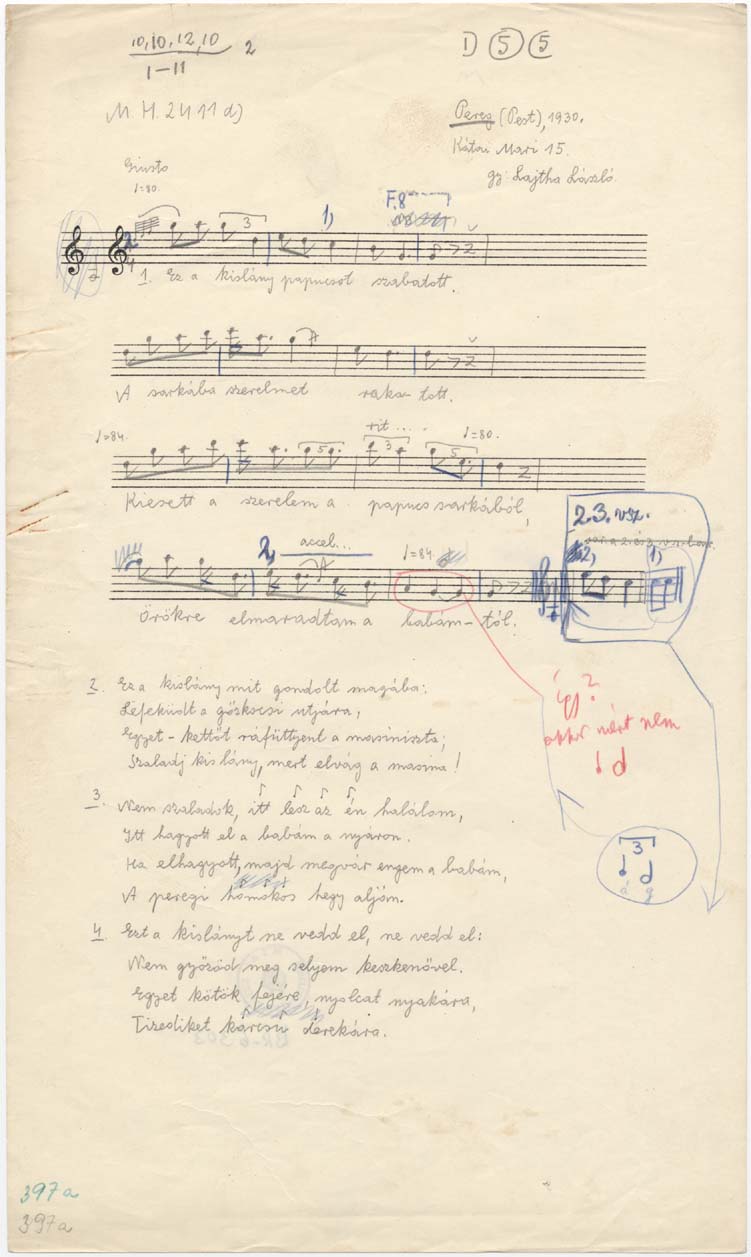 10, 10, 12, 10 2
1–11
D 5 5
M. H. 2411 d)
Pereg (Pest), 1930.
Kátai Mari 15.
gy: Lajtha László.
Giusto
♩=80.
3
1)
F. 8
1. Ez a kislány papucsot szabatott.
A sarkába szerelmet rakatott.
♩=84.
5
rit....
3
5
♩=80.
Kiesett a szerelem a papucs sarkából,
2.3. vsz.
2)
1)
2,
accel...
♩=84.
Örökre elmaradtam a babám-tól.
Így?
akkor miért nem
2. Ez a kislány mit gondolt magába:
Lefeküdt a gőzkocsi utjára,
Egyet-kettőt ráfüttyent a masiniszta;
Szaladj kislány, mert elvág a masina!
3. Nem szaladok, itt lesz az én halálom,
Itt hagyott el a babám a nyáron.
Ha elhagyott, majd megvár engem a babám,
A peregi homokos hegy alján.
3
d g
4. Ezt a kislányt ne vedd el, ne vedd el:
Nem győzöd meg selyem keszkenővel.
Egyet kötök fejére, nyolcat nyakára,
Tizediket karcsú derekára.
397a
397a